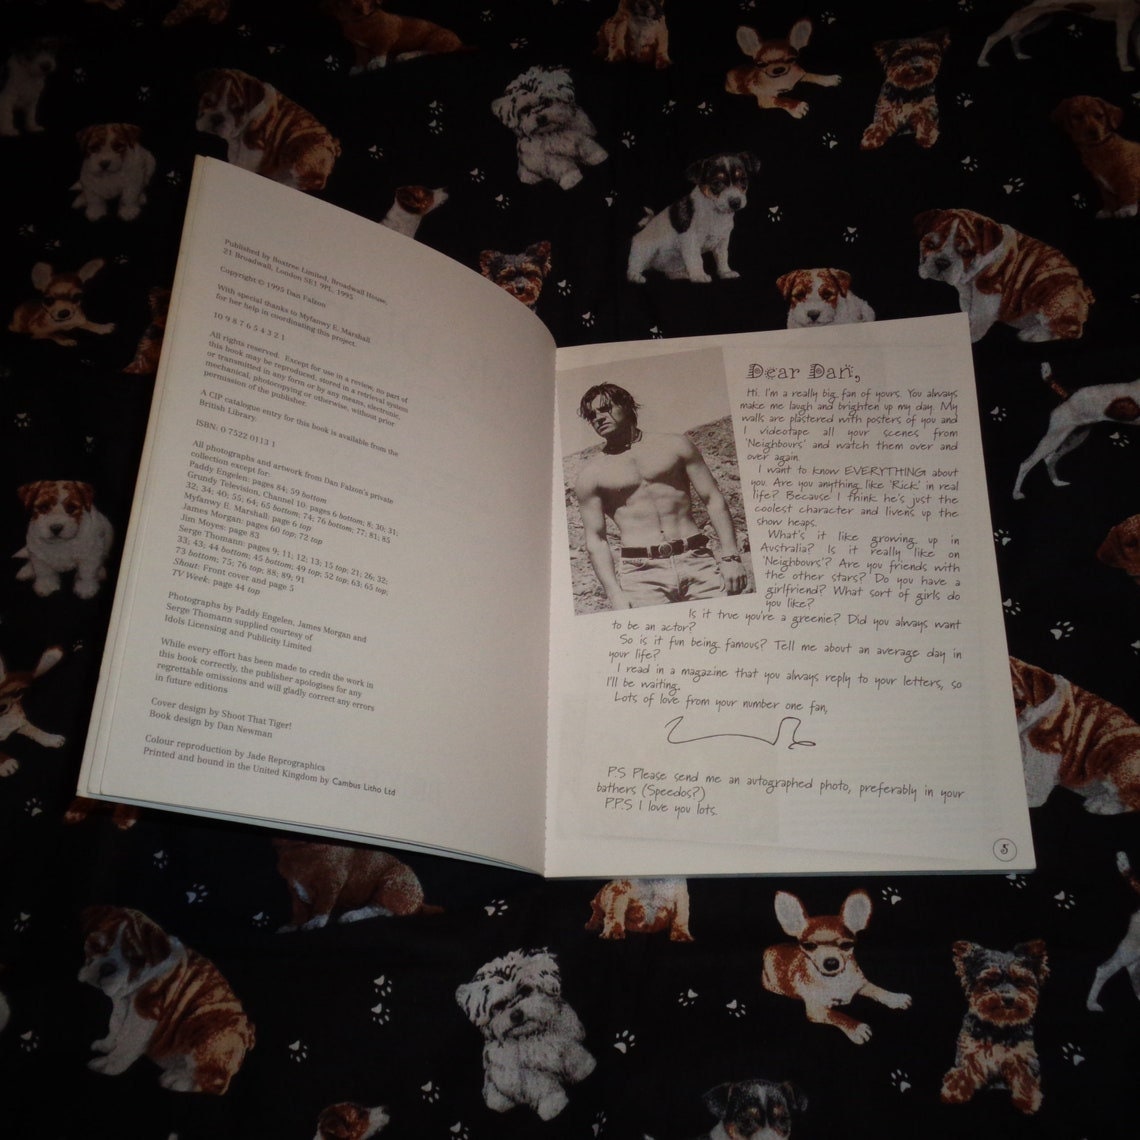 Published by Boxtree Limited, Broadwall House,
21 Broadwall, London SE1 9PL, 1995
Copyright © 1995 Dan Falzon
With special thanks to Myfanwy E. Marshall
for her help in coordinating this project.
10 9 8 7 6 5 4 3 2 1
All rights reserved. Except for use in a review, no part of
this book may be reproduced, stored in a retrieval system
or transmitted in any form or by any means, electronic,
mechanical, photocopying or otherwise, without prior
permission of the publisher.
A CIP catalogue entry for this book is available from the
British Library.
ISBN: 0 7522 0113 1
All photographs and artwork from Dan Falzon's private
collection except for:
Paddy Engelen: pages 84; 59 bottom
Grundy Television, Channel 10: pages 6 bottom; 8; 30; 31;
32; 34; 40; 55; 64; 65 bottom; 74; 76 bottom; 77; 81; 85
Myfanwy E. Marshall: page 6 top
James Morgan: pages 60 top; 72 top
Jim Moyes: page 83
Serge Thomann: pages 9; 11; 12; 13; 15 top; 21; 26; 32;
33; 43; 44 bottom; 45 bottom; 49 top; 52 top; 63; 65 top;
73 bottom; 75; 76 top; 88; 89; 91
Shout: Front cover and page 5
TV Week: page 44 top
Photographs by Paddy Engelen, James Morgan and
Serge Thomann supplied courtesy of
Idols Licensing and Publicity Limited
While every effort has been made to credit the work in
this book correctly, the publisher apologises for any
regrettable omissions and will gladly correct any errors
in future editions
Cover design by Shoot That Tiger!
Book design by Dan Newman
Colour reproduction by Jade Reprographics
Printed and bound in the United Kingdom by Cambus Litho Ltd
Dear Dan,
Hi. I'm a really big fan of yours. You always
make me laugh and brighten up my day. My
walls are plastered with posters of you and
I videotape all your scenes from
'Neighbours' and watch them over and
over again.
I want to know EVERYTHING about
you. Are you anything like 'Rick' in real
life? Because I think he's just the
coolest character and livens up the
show heaps.
What's it like growing up in
Australia? Is it really like on
'Neighbours'? Are you friends with
the other stars? Do you have a
girlfriend? What sort of girls do
you like?
Is it true you're a greenie? Did you always want
to be an actor?
So is it fun being famous? Tell me about an average day in
your life?
I read in a magazine that you always reply to your letters, so
I'll be waiting.
Lots of love from your number one fan,
P.S Please send me an autographed photo, preferably in your
bathers (Speedos?)
P.P.S I love you lots.
5